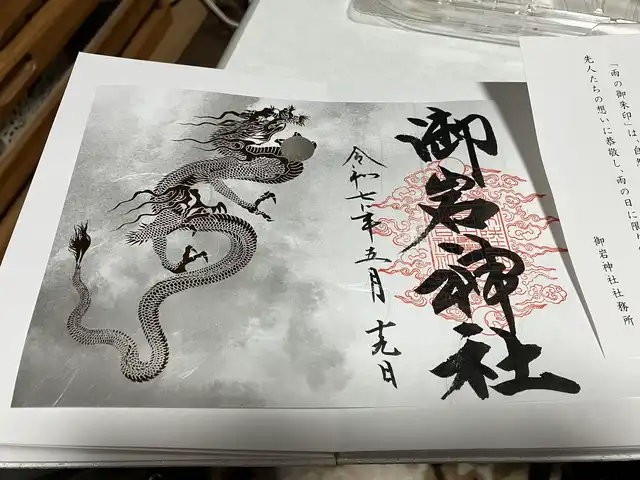 「雨の御朱印」は、自然
先人たちの想いに恭敬し、雨の日に限り
御岩神社社務所
御岩神社
令和七年五月十九日